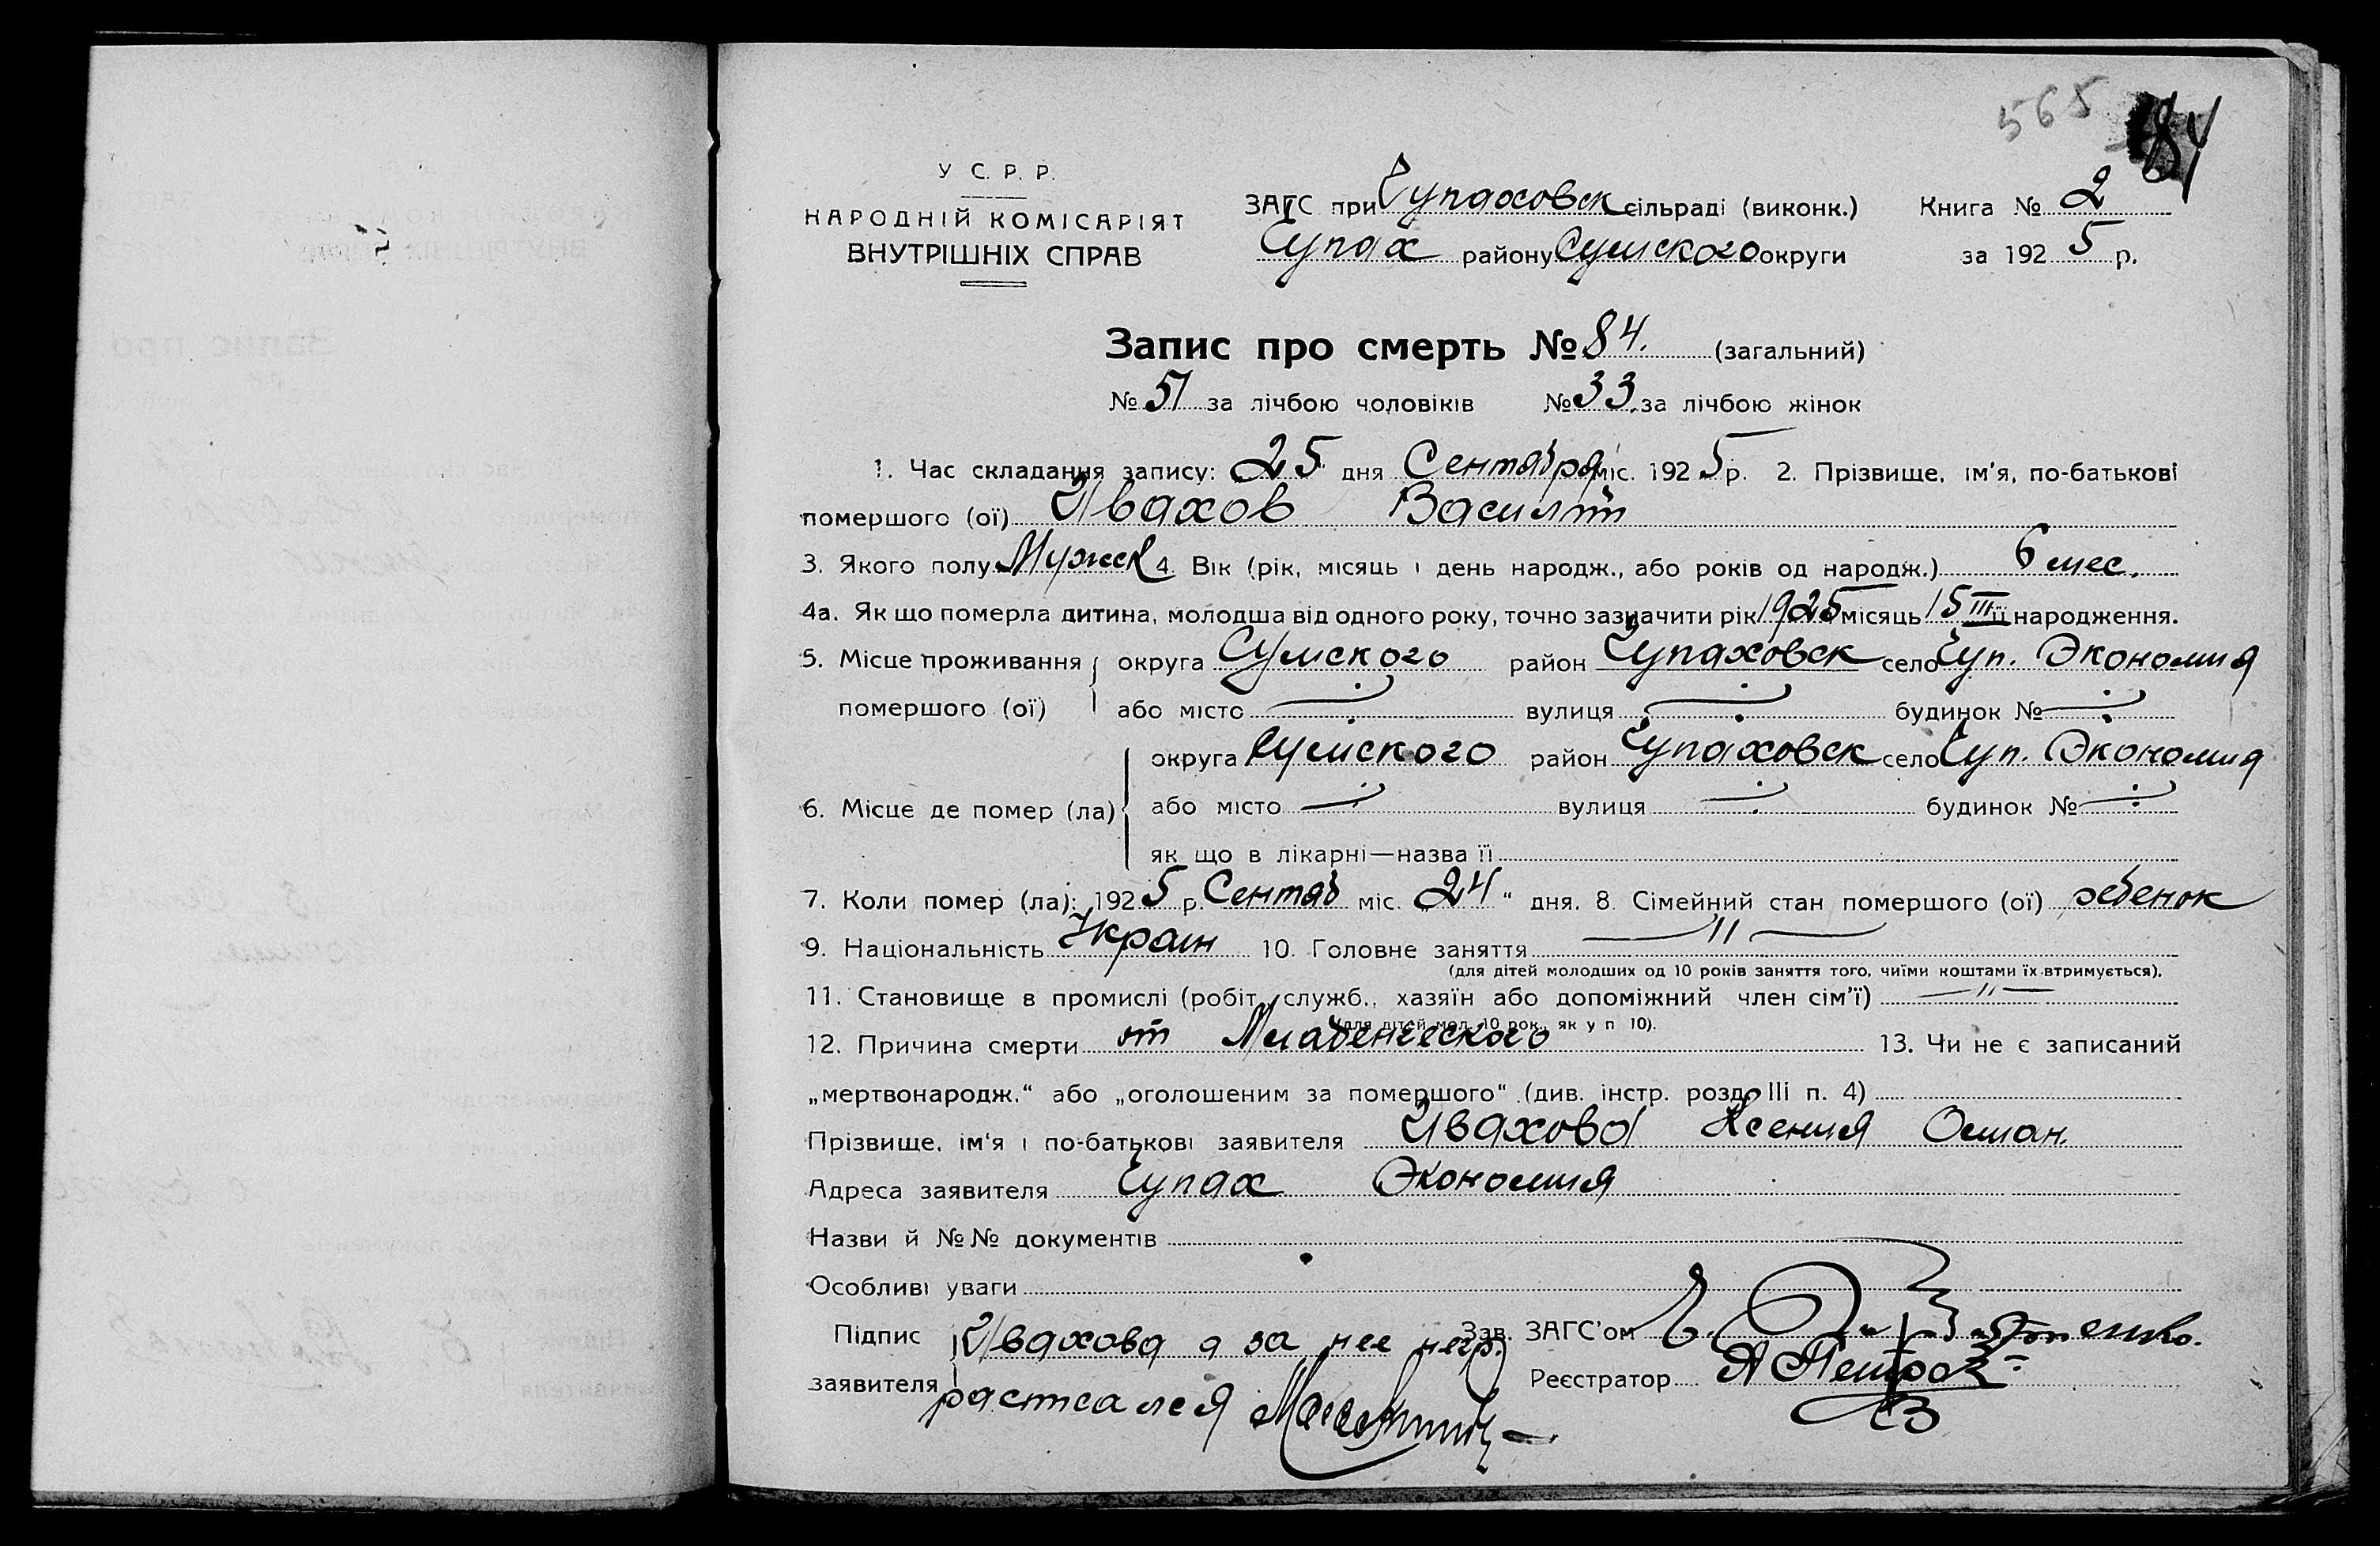 565 84
У С. Р. Р.
НАРОДНІЙ КОМІСАРІЯТ
ВНУТРІШНІХ СПРАВ
ЗАГС при Чупаховск сільраді (виконк.) Книга № 2
Чупах району Сумского округи за 192 5 р.
Запис про смерть № 84. (загальний)
№ 51 за лічбою чоловіків № 33. за лічбою жінок
1. Час складання запису: 25 дня Сентября міс. 192 5 р. 2. Прізвище, ім'я, по-батькові
помершого (ої) Ивахов Василий
3. Якого полу Мужск 4. Вік (рік, місяць і день народж., або років од народж.) 6 мес.
4а. Як що померла дитина, молодша від одного року, точно зазначити рік 1925 місяць 15 III її народження.
5. Місце проживання округа Сумского район Чупаховск село Чуп. Экономия
помершого (ої) або місто вулиця будинок №
округа Сумского район Чупаховск село Чуп. Экономия
6. Місце де помер (ла) або місто вулиця будинок №
як що в лікарні—назва її
7. Коли помер (ла): 192 5 р. Сентяб міс. „24" дня. 8. Сімейний стан помершого (ої) ребенок
9. Національність Украин 10. Головне заняття —"—
(для дітей молодших од 10 років заняття того, чиїми коштами їх втримується).
11. Становище в промислі (робіт., служб., хазяїн або допоміжний член сім'ї) —"—
(для дітей мол. 10 рок., як у п 10).
12. Причина смерти от Младенческого 13. Чи не є записаний
„мертвонародж." або „оголошеним за помершого" (див. інстр. розд. III п. 4)
Прізвище, ім'я і по-батькові заявителя Ивахова Ксения
Адреса заявителя Чупах Экономия
Назви й №№ документів
Особливі уваги
Підпис Ивахова а за нее негр. Зав. ЗАГС'ом
заявителя растсался Реєстратор